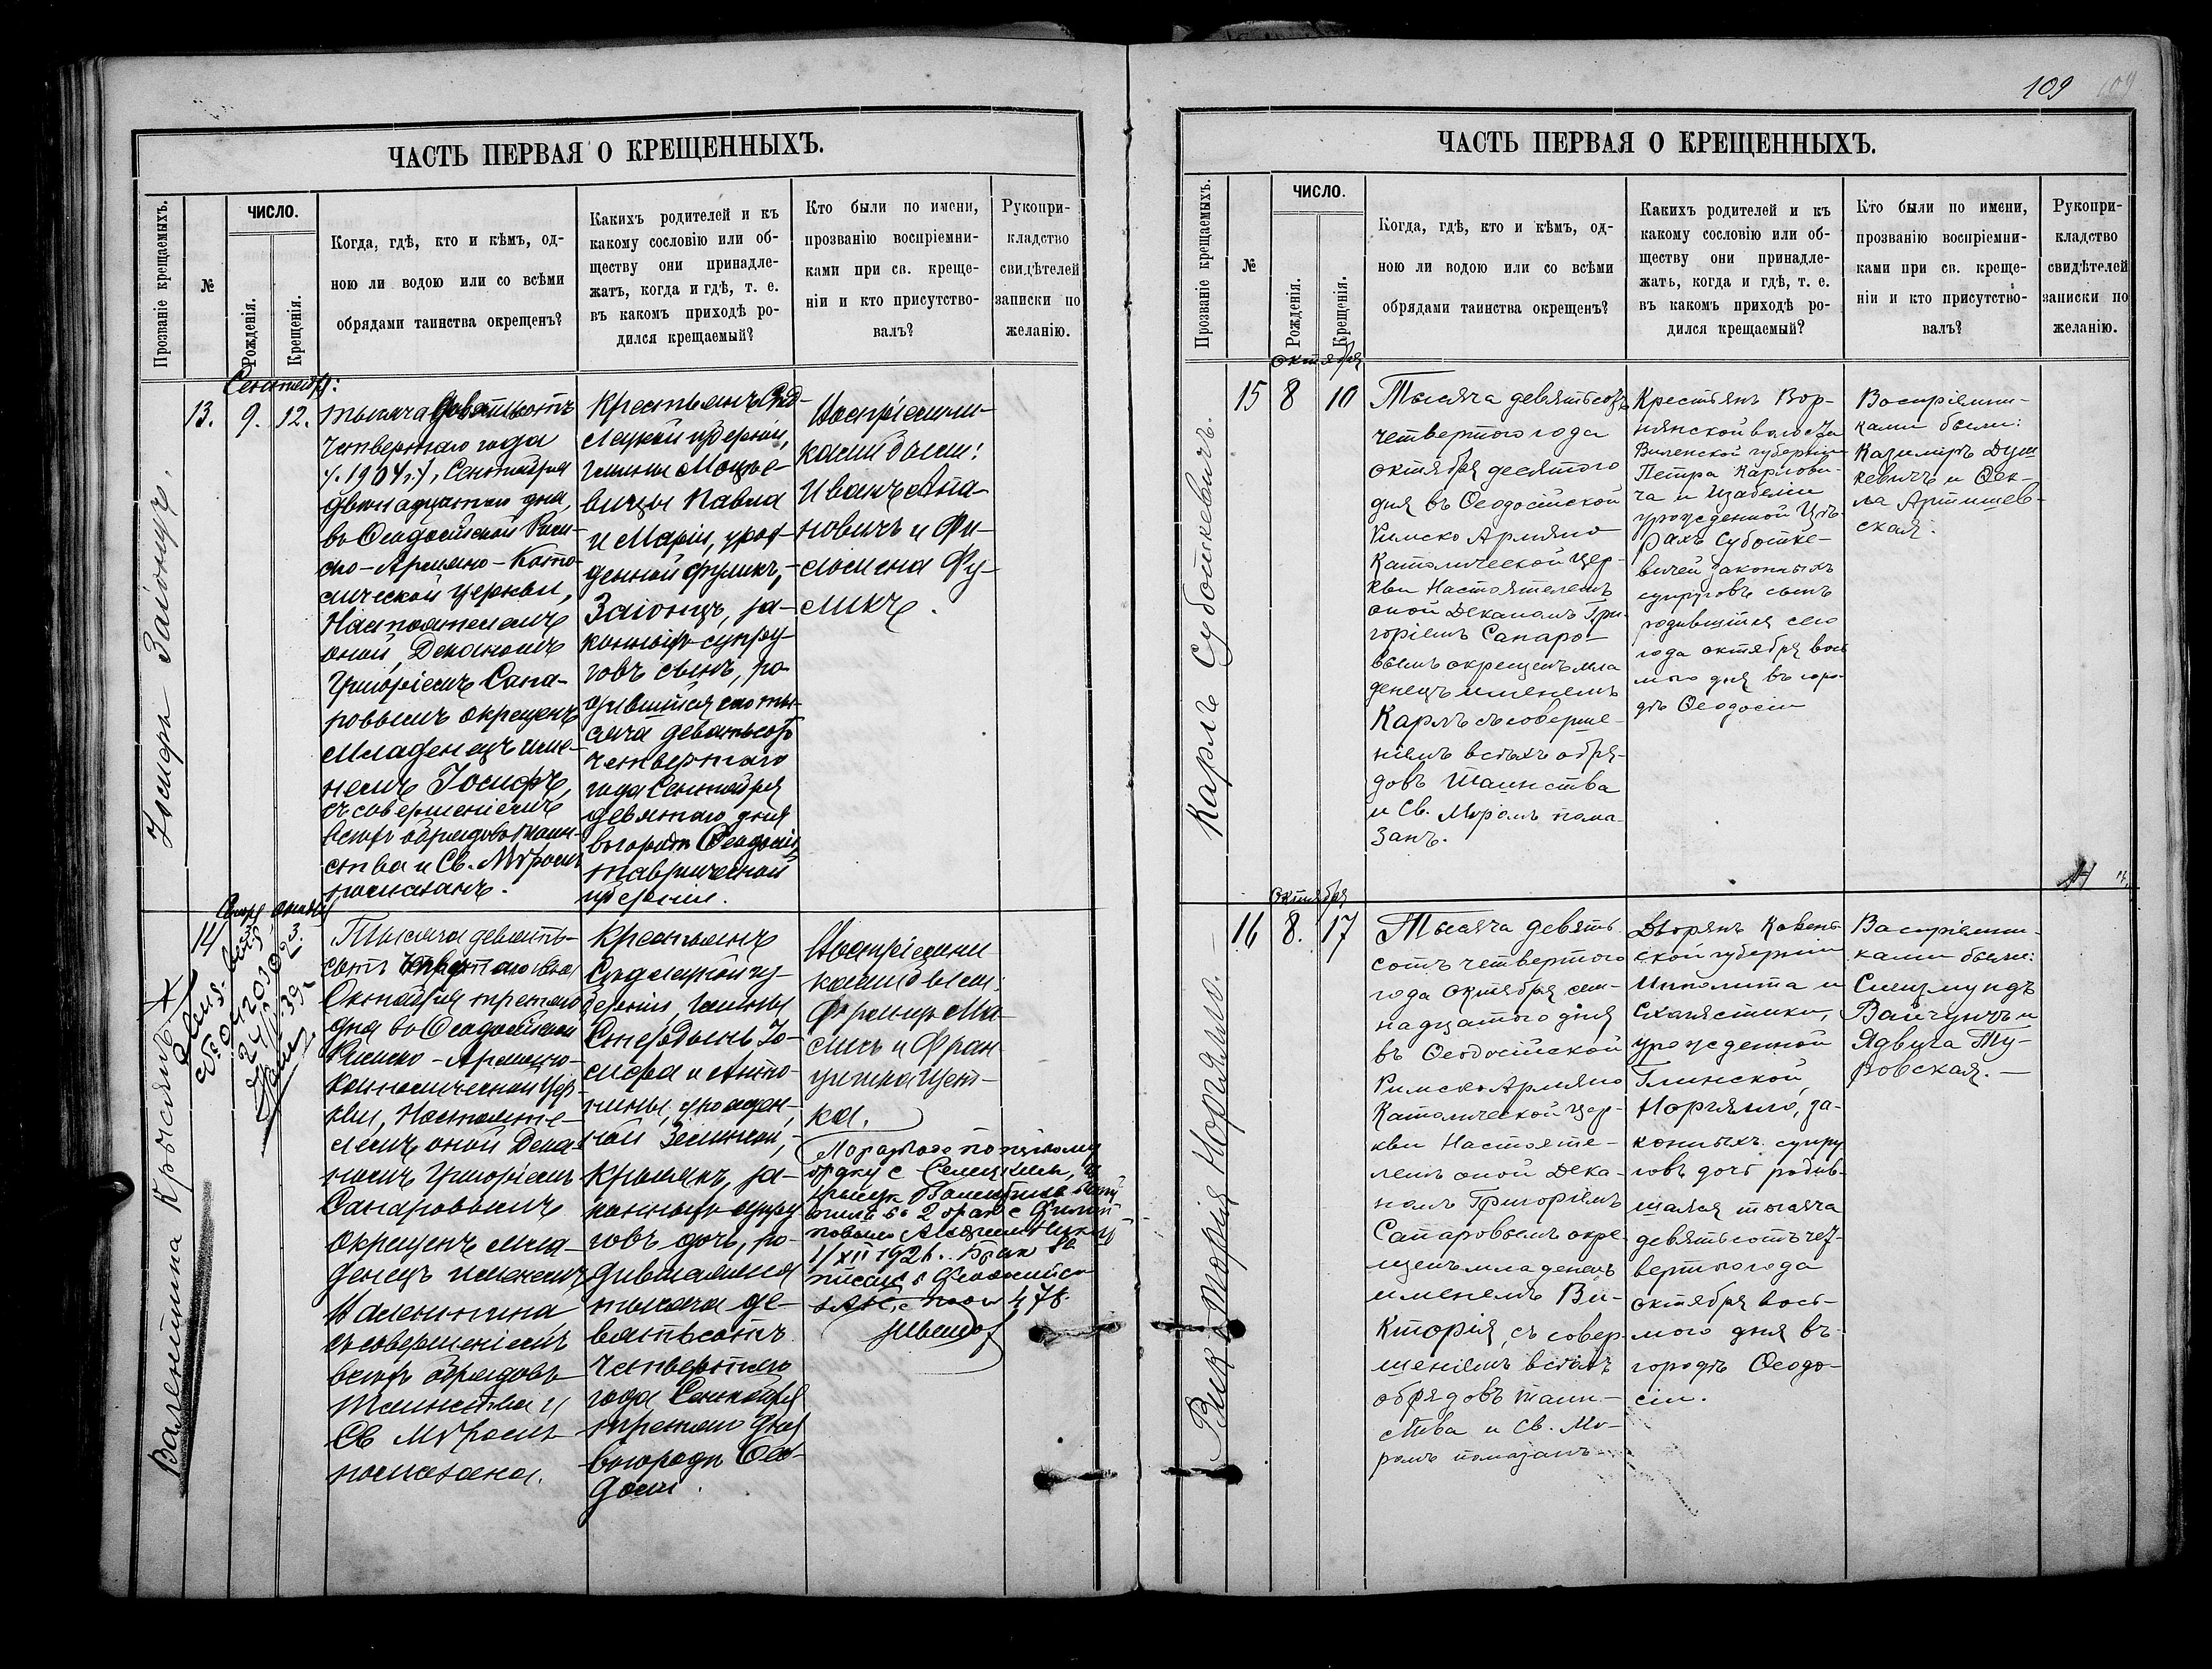 ЧАСТЬ ПЕРВАЯ О КРЕЩЕННЫХЪ.
Прозваніе крещаемыхъ.
№
ЧИСЛО.
Рожденія.
Крещенія.
Когда, гдѣ, кто и кѣмъ, од-
ною ли водою или со всѣми
обрядами таинства окрещенъ?
Какихъ родителей и къ
какому сословію или об-
ществу они принадле-
жатъ, когда и гдѣ, т. е.
въ какомъ приходѣ ро-
дился крещаемый?
Кто были по имени,
прозванію воспріемни-
ками при св. креще-
ніи и кто присутство-
валъ?
Рукопри-
кладство
свидѣтелей
записки по
желанію.
Іосифъ Заіонцъ.
13.
9.
12.
Тысяча девятьсотъ
четвертаго года
/.1904 г./, Сентября
двѣнадцатаго дня,
въ Ѳеодосійской Рим-
ско-Армяно-Като-
лической церкви,
Настоятелемъ
оной, Деканомъ
Григоріемъ Сапа-
ровымъ окрещенъ
младенецъ име-
немъ Іосифъ,
съ совершеніемъ
всѣхъ обрядовъ таин-
ства и Св. Мѵромъ
помазанъ.
Крестьянъ Сѣд-
лецкой губерніи,
гмины
Павла
и Маріи, урож-
денной Фуликъ,
Заіонцъ, за-
конныхъ супру-
говъ сынъ, ро-
дившійся сего ты-
сяча девятьсотъ
четвертаго
года Сентября
девятаго дня
въ городѣ Ѳеодосіи,
Таврической
губерніи.
Воспріемни-
ками были:
Иванъ Апа-
новичъ и Фи-
ломена Фу-
ликъ.
Валентина Крысякъ
14
3.
3.
Тысяча девять-
сотъ четвертаго года
Октября третьяго
дня въ Ѳеодосійской
Римско-Армяно-
католической цер-
кви, Настояте-
лемъ оной Дека-
номъ Григоріемъ
Сапаровымъ
окрещенъ мла-
денецъ именемъ
Валентина
съ совершеніемъ
всѣхъ обрядовъ
таинства и
Св Мѵромъ
помазана.
Крестьянъ
Сѣдлецкой гу-
берніи, гмины
Іо-
сифа и Анто-
нины, урожден-
ной
Крысякъ, за-
конныхъ супру-
говъ дочь, ро-
дившаяся
тысяча де-
вятьсотъ
четвертаго
года Сентября
третьяго дня
въ городѣ Ѳео-
досіи.
Воспріемни-
ками были:
и Фран-
цишка
ка.
Валентина
во 2 брак с
1/XII 1926. Брак
478.
109
ЧАСТЬ ПЕРВАЯ О КРЕЩЕННЫХЪ.
Прозваніе крещаемыхъ.
№
ЧИСЛО.
Рожденія.
Крещенія.
Когда, гдѣ, кто и кѣмъ, од-
ною ли водою или со всѣми
обрядами таинства окрещенъ?
Какихъ родителей и къ
какому сословію или об-
ществу они принадле-
жатъ, когда и гдѣ, т. е.
въ какомъ приходѣ ро-
дился крещаемый?
Кто были по имени,
прозванію воспріемни-
ками при св. креще-
ніи и кто присутство-
валъ?
Рукопри-
кладство
свидѣтелей
записки по
желанію.
Карлъ Суботкевичъ.
октября
15
8
10
Тысяча девятьсотъ
четвертого года
октября десятого
дня въ Ѳеодосійской
Римско Армяно
Католической цер-
кви Настоятелемъ
оной Деканомъ Гри-
горіемъ Сапаро-
вымъ окрещенъ мла
денецъ именемъ
Карлъ съ соверше-
ніемъ всѣхъ обря-
довъ таинства
и Св. Мѵромъ пома-
занъ.
Крестьянъ Вор-
нянской волости
Виленской губерніи
Петра Карлови-
ча и Изабеліи
урожденной
Суботке-
вичей законныхъ
супруговъ сынъ
родившійся сего
года октября вось
мого дня въ горо-
дѣ Ѳеодосіи
Воспріемни-
ками были:
Казиміръ Душ
кевичъ и Ѳек-
ла Артишев-
ская.
Викторія Норгялло.
октября
16
8.
17
Тысяча девять
сотъ четвертого
года октября сем-
надцатого дня
въ Ѳеодосійской
Римско Армяно
Католической цер-
кви Настояте-
лемъ оной Дека-
номъ Григоріемъ
Сапаровымъ окре-
щенъ младенецъ
именемъ Ви-
кторія, съ совер-
шеніемъ всѣхъ
обрядовъ таин-
ства и Св. Мѵ-
ромъ помазанъ
Дворянъ Ковен-
ской губерніи
Ипполита и
Схолястики,
урожденной
Глинской,
Норгялло, за-
конныхъ супру
говъ дочь родив-
шаяся тысяча
девятьсотъ чет-
вертого года
октября вось-
мого дня въ
городѣ Ѳеодо-
сіи.
Воспріемни-
ками были:
Сигизмундъ
и
Ядвига Ту-
ровская.